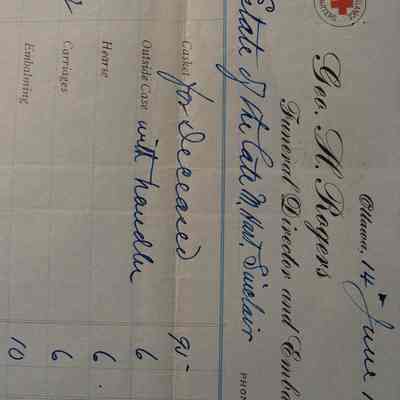 Ottawa, 14 June 1
Geo. H. Rogers
Funeral Director and Emba
PHON
Estate of the late N. Sinclair
Casket for deceased 90
Outside Case with handles 6
Hearse 6
Carriages 6
Embalming 10